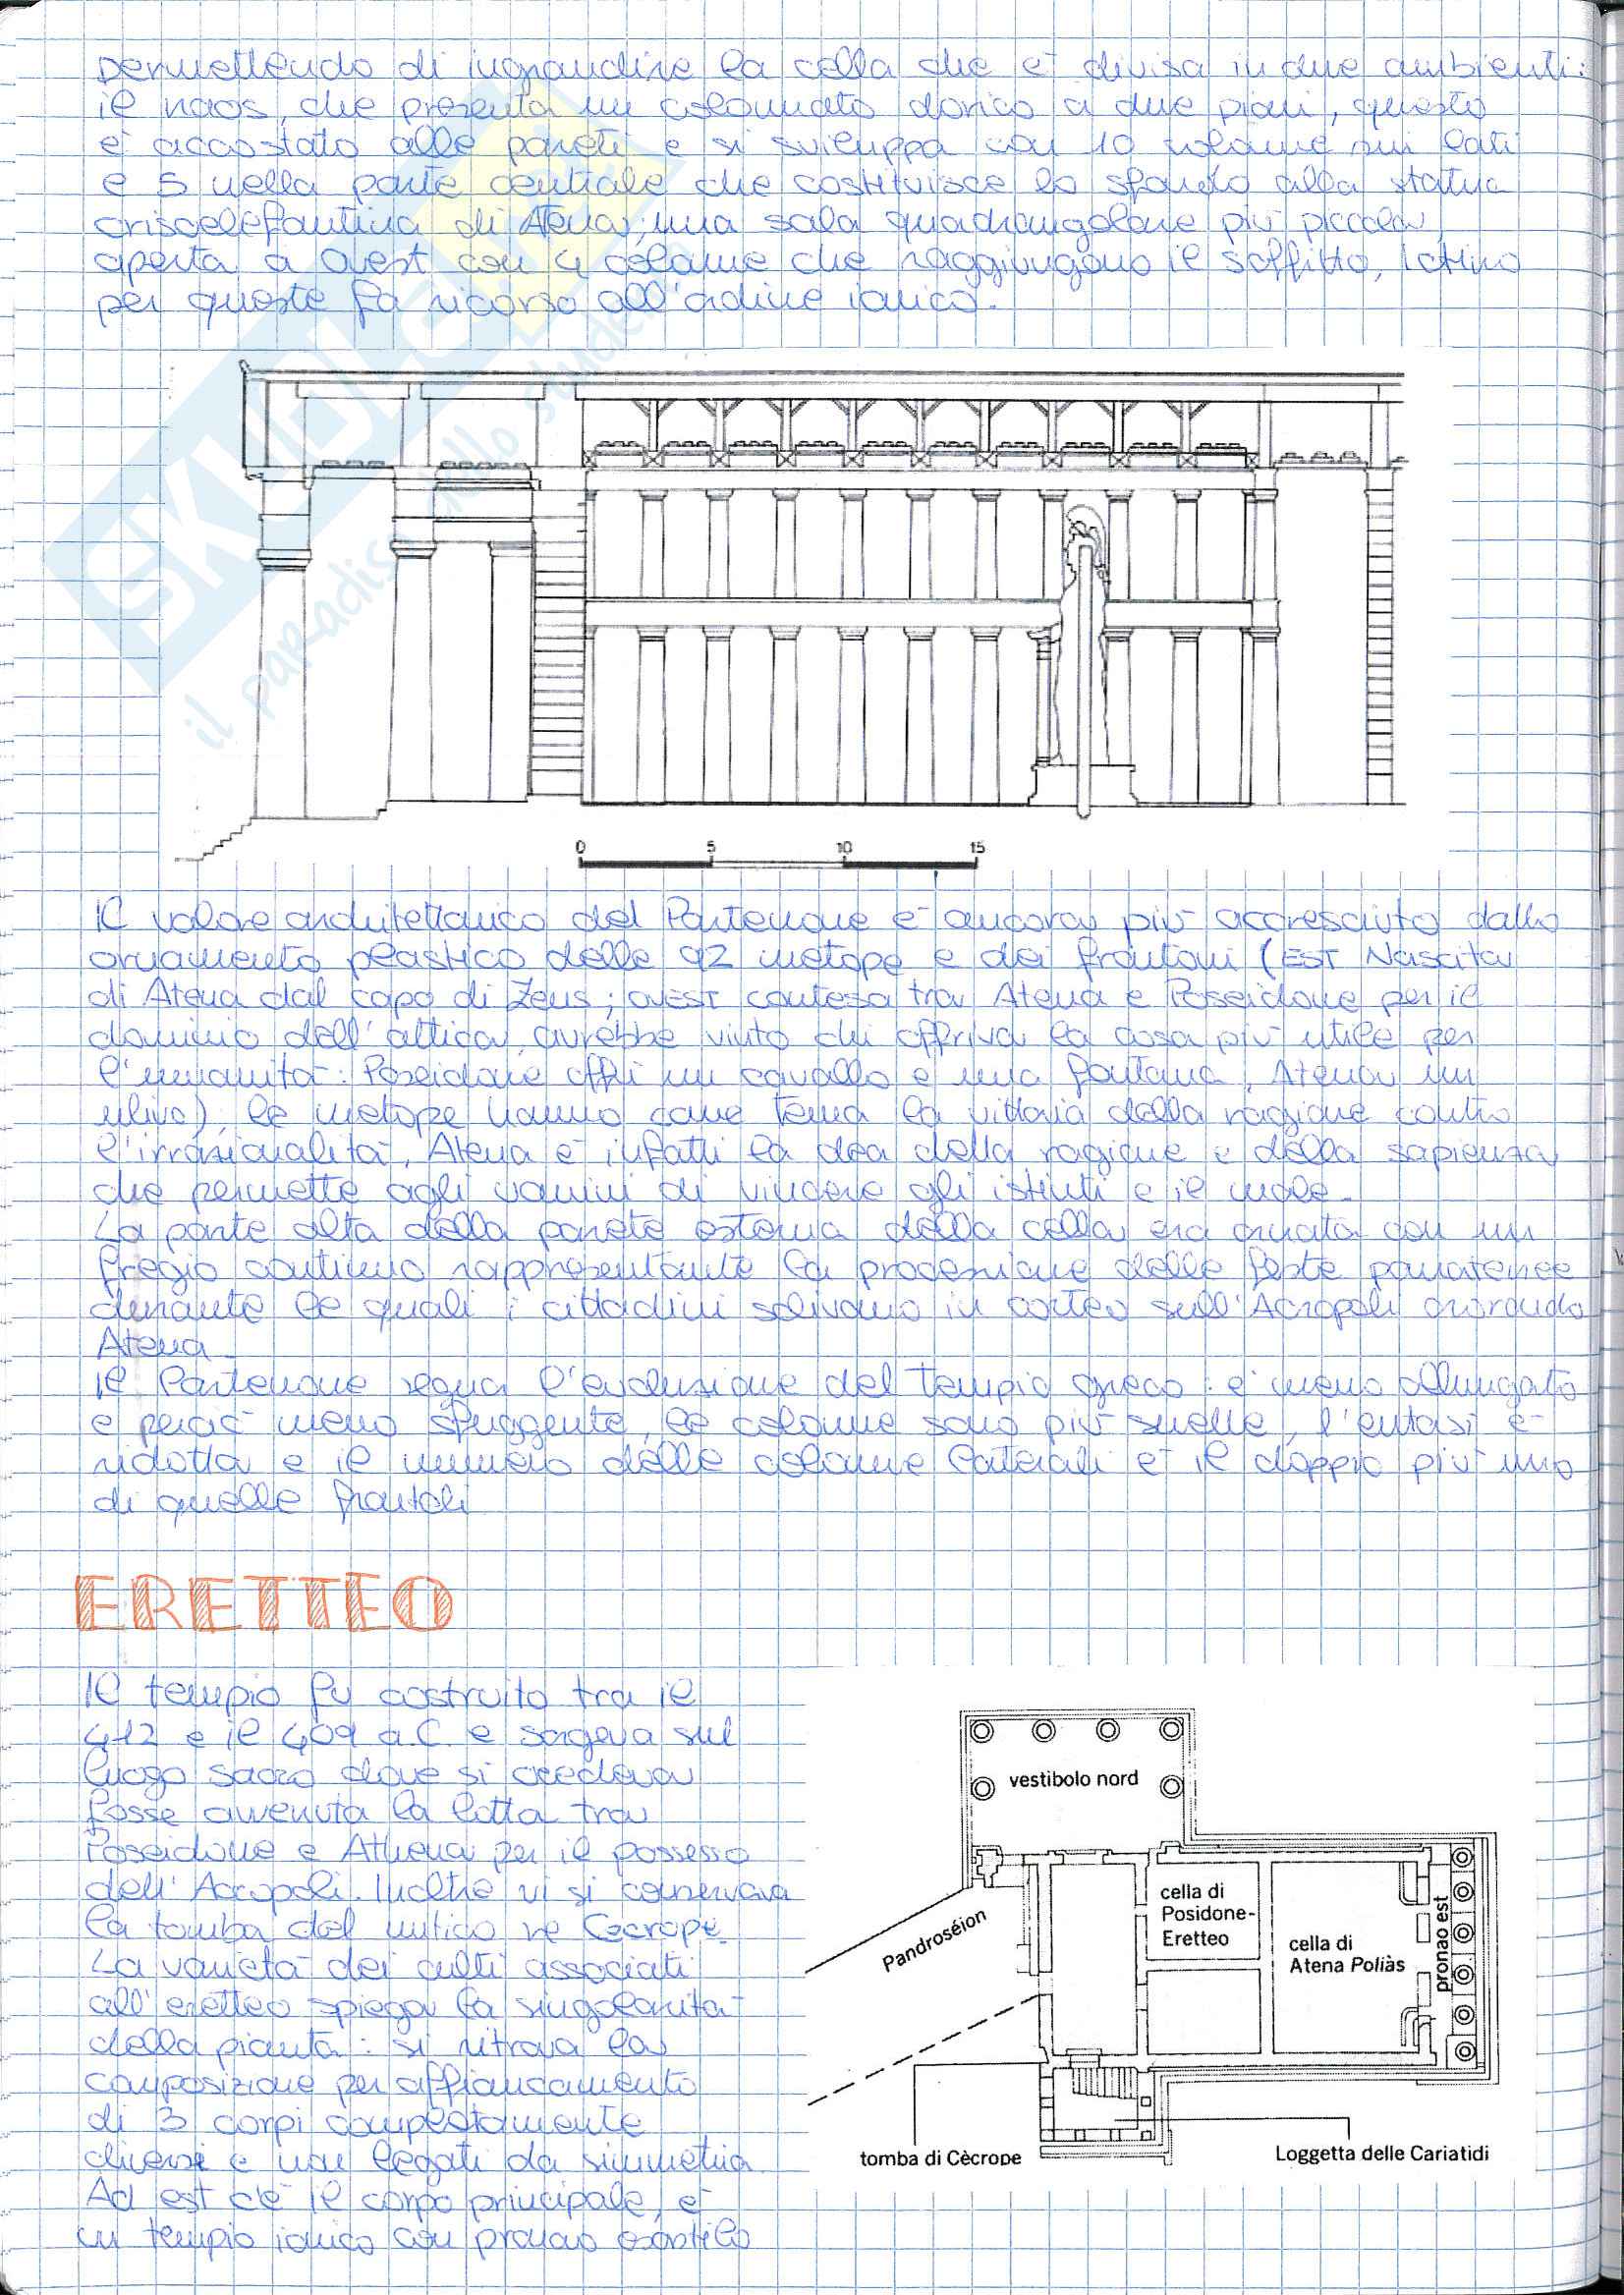 permettendo di ingrandire la cella che è divisa in due ambienti:
il naos, che presenta un colonnato dorico a due piani, questo
è accostato alle pareti e si sviluppa con 10 colonne sui lati
e 5 nella parte centrale che costituisce lo sfondo alla statua
crisoelefantina di Atena; una sala quadrangolare più piccola,
aperta a ovest con 4 colonne che raggiungono il soffitto, Ictino
per queste fa ricorso all'ordine ionico.
SKUOLA.NET
il paradiso dello studente
0 5 10 15
Il valore architettonico del Partenone è ancora più accresciuto dallo
ornamento plastico delle 92 metope e dei frontoni (EST Nascita
di Atena dal capo di Zeus; OVEST contesa tra Atena e Poseidone per il
dominio dell'attica, avrebbe vinto chi offriva la cosa più utile per
l'umanità: Poseidone offrì un cavallo e una fontana, Atena un
ulivo); le metope hanno come tema la vittoria della ragione contro
l'irrazionalità, Atena è infatti la dea della ragione e della sapienza
che permette agli uomini di vincere gli istinti e il male.
La parte alta della parete esterna della cella era ornata con un
fregio continuo rappresentante la processione delle feste panatenee
durante le quali i cittadini salivano in corteo sull'Acropoli onorando
Atena.
Il Partenone segna l'evoluzione del tempio greco: è meno allungato
e perciò meno sfuggente, le colonne sono più snelle, l'entasi è
ridotta e il numero delle colonne laterali è il doppio più uno
di quelle frontali
ERETTEO
Il tempio fu costruito tra il
412 e il 409 a.C. e sorgeva sul
luogo sacro dove si credeva
fosse avvenuta la lotta tra
Poseidone e Athena per il possesso
dell'Acropoli. Inoltre vi si conservava
la tomba del mitico re Cecrope.
La varietà dei culti associati
all'eretteo spiega la singolarità
della pianta: si ritrova la
composizione per affiancamento
di 3 corpi completamente
diversi e non legati da simmetria
Ad est c'è il corpo principale, è
un tempio ionico con pronao esastilo
vestibolo nord
cella di
Posidone-
Eretteo
cella di
Atena Poliàs
pronao est
Pandroséion
tomba di Cècrope
Loggetta delle Cariatidi